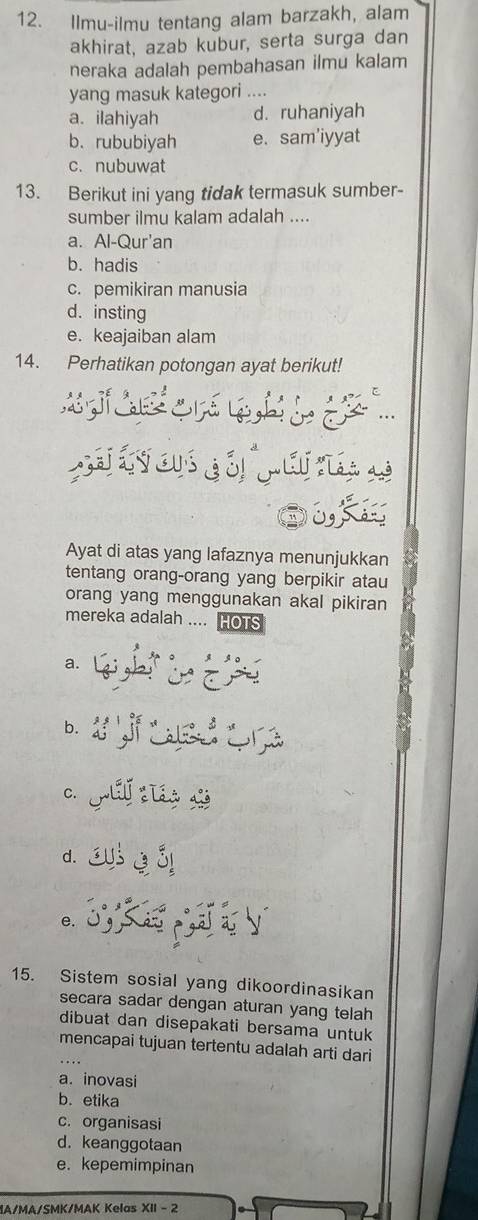 12. Ilmu-ilmu tentang alam barzakh, alam
akhirat, azab kubur, serta surga dan
neraka adalah pembahasan ilmu kalam
yang masuk kategori ....
a. ilahiyah
b. rububiyah
c. nubuwat
d. ruhaniyah
e. sam'iyyat
13. Berikut ini yang tidak termasuk sumber-
sumber ilmu kalam adalah ....
a. Al-Qur'an
b. hadis
c. pemikiran manusia
d. insting
e. keajaiban alam
14. Perhatikan potongan ayat berikut!
... يَخْرُجُ مِنْ بُطُوْنِهَا شَرَابٌ مُّخْتَلِفٌ اَلْوَانُهٗ
فِيْهِ شِفَاۤءٌ لِّلنَّاسِۗ اِنَّ فِيْ ذٰلِكَ لَاٰيَةً لِّقَوْمٍ
يَّتَفَكَّرُوْنَ ٦٩
Ayat di atas yang lafaznya menunjukkan
tentang orang-orang yang berpikir atau
orang yang menggunakan akal pikiran
mereka adalah .... HOTS
a. يَخْرُجُ مِنْ بُطُوْنِهَا
b. شَرَابٌ مُّخْتَلِفٌ اَلْوَانُهٗ
c. فِيْهِ شِفَاۤءٌ لِّلنَّاسِ
d. اِنَّ فِيْ ذٰلِكَ
e. لَاٰيَةً لِّقَوْمٍ يَّتَفَكَّرُوْنَ
15. Sistem sosial yang dikoordinasikan
secara sadar dengan aturan yang telah
dibuat dan disepakati bersama untuk
mencapai tujuan tertentu adalah arti dari
....
a. inovasi
b. etika
c. organisasi
d. keanggotaan
e. kepemimpinan
MA/MA/SMK/MAK Kelas XII - 2